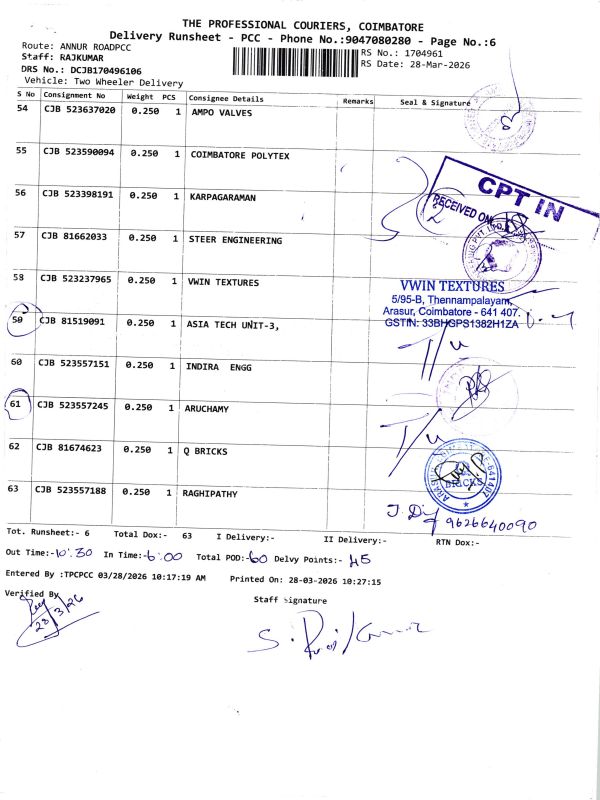 THE PROFESSIONAL COURIERS, COIMBATORE
Delivery Runsheet - PCC - Phone No.:9047080280 - Page No.:6
Route: ANNUR ROADPCC
RS No.: 1704961
Staff: RAJKUMAR
RS Date: 28-Mar-2026
DRS No.: DCJB170496106
Vehicle: Two Wheeler Delivery
S No Consignment No Weight PCS Consignee Details Remarks Seal & Signature
54 CJB 523637020 0.250 1 AMPO VALVES
55 CJB 523590094 0.250 1 COIMBATORE POLYTEX
CPT IN
RECEIVED ON
56 CJB 523398191 0.250 1 KARPAGARAMAN
57 CJB 81662033 0.250 1 STEER ENGINEERING
58 CJB 523237965 0.250 1 VWIN TEXTURES
VWIN TEXTURES
5/95-B, Thennampalayam,
Arasur, Coimbatore - 641 407.
GSTIN: 33BHGPS1382H1ZA
59 CJB 81519091 0.250 1 ASIA TECH UNIT-3,
60 CJB 523557151 0.250 1 INDIRA ENGG
61 CJB 523557245 0.250 1 ARUCHAMY
62 CJB 81674623 0.250 1 Q BRICKS
BRICKS
63 CJB 523557188 0.250 1 RAGHIPATHY
9626640090
Tot. Runsheet:- 6 Total Dox:- 63 I Delivery:- II Delivery:- RTN Dox:-
Out Time:-10.30 In Time:-6.00 Total POD:-60 Delvy Points:- 45
Entered By :TPCPCC 03/28/2026 10:17:19 AM Printed On: 28-03-2026 10:27:15
Verified By
Staff Signature
28/3/26